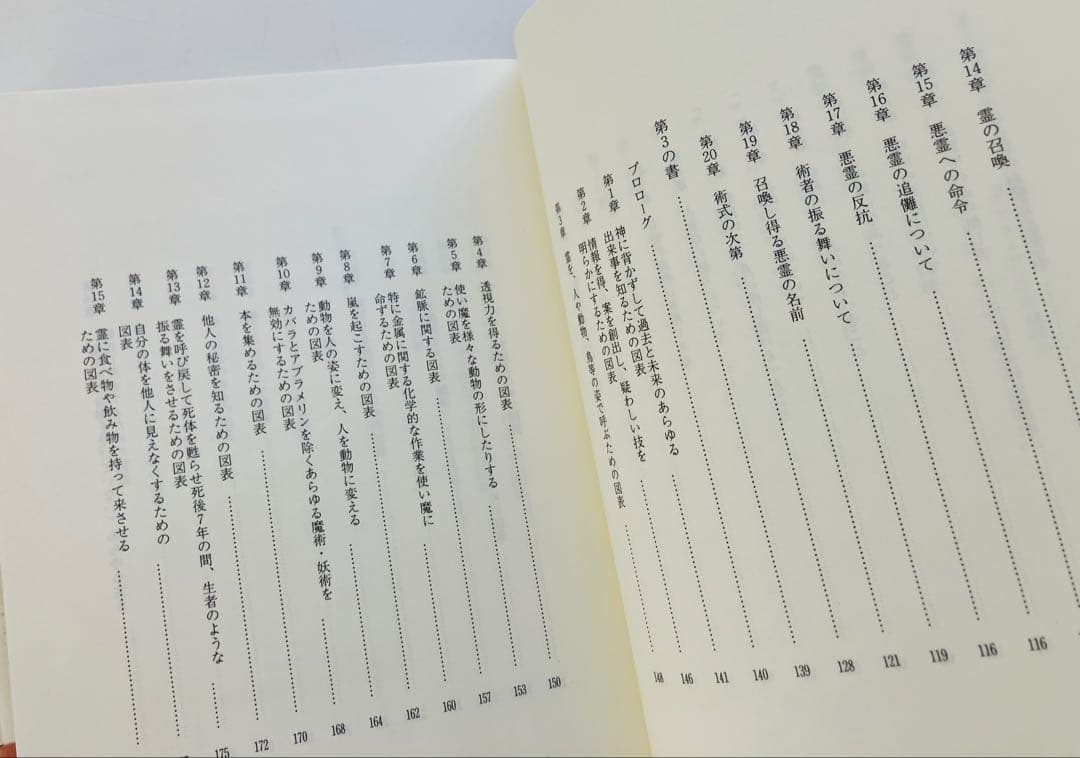 第14章　霊の召喚
第15章　悪霊への命令
第16章　悪霊の追儺について
第17章　悪霊の反抗
第18章　術者の振る舞いについて
第19章　召喚し得る悪霊の名前
第20章　術式の次第
第3の書
プロローグ
第1章　神に背かずして過去と未来のあらゆる
出来事を知るための図表
第2章　情報を得、案を創出し、疑わしい技を
明らかにするための図表
第3章　霊を、人や動物、鳥等の姿で呼ぶための図表
116
116
119
121
128
139
140
141
146
148
第4章　透視力を得るための図表
第5章　使い魔を様々な動物の形にしたりする
ための図表
第6章　鉱脈に関する図表
第7章　特に金属に関する化学的な作業を使い魔に
命ずるための図表
第8章　嵐を起こすための図表
第9章　動物を人の姿に変え、人を動物に変える
ための図表
第10章　カバラとアブラメリンを除くあらゆる魔術・妖術を
無効にするための図表
第11章　本を集めるための図表
第12章　他人の秘密を知るための図表
第13章　霊を呼び戻して死体を甦らせ死後7年の間、生者のような
振る舞いをさせるための図表
第14章　自分の体を他人に見えなくするための
図表
第15章　霊に食べ物や飲み物を持って来させる
ための図表
150
153
157
160
162
164
168
170
172
175